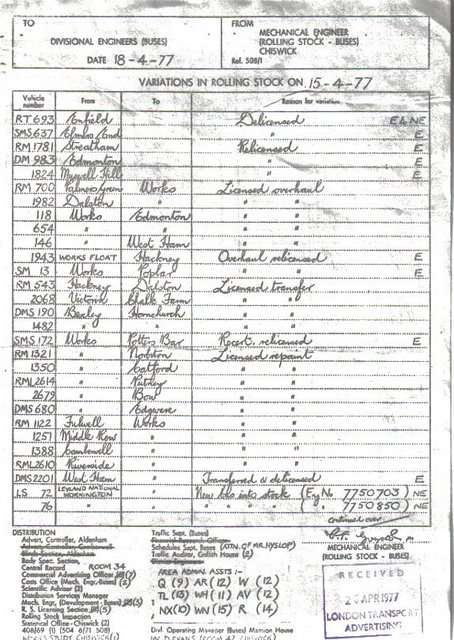 TO
DIVISIONAL ENGINEERS (BUSES)
DATE 18-4-77
FROM
MECHANICAL ENGINEER
(ROLLING STOCK - BUSES)
CHISWICK
Ref. 508/1
VARIATIONS IN ROLLING STOCK ON 15-4-77
Vehicle number From To Reason for variation
RT 693 Enfield Delicensed E & NE
SMS 637 Elmers End " E
RM 1781 Streatham Relicensed E
DM 983 Edmonton " E
1824 Muswell Hill " E
RM 700 Palmers Green Works Licensed overhaul
1982 Dalston " " "
118 Works Edmonton " "
654 " " " "
146 " West Ham " "
1943 WORKS FLOAT Hackney Overhaul relicensed E
SM 13 Works Poplar " " E
RM 543 Hackney Dalston Licensed transfer
2068 Victoria Chalk Farm " "
DMS 190 Bexley Hornchurch " "
1482 " " " "
SMS 172 Works Potters Bar Recert. relicensed E
RM 1321 " Norbiton Licensed repaint
1350 " Catford " "
RML 2614 " Putney " "
2679 " Bow " "
DMS 680 " Edgware " "
RM 1122 Fulwell Works " "
1251 Middle Row " " "
1388 Camberwell " " "
RML 2610 Riverside " " "
DMS 2201 West Ham Transferred & delicensed E
LS 72 LEYLAND NATIONAL WORKINGTON New bus into stock (Eng No 7750703) NE
76 " " " " " ( " " 7750850) NE
continued over
MECHANICAL ENGINEER
(ROLLING STOCK - BUSES)
DISTRIBUTION
Advert. Controller, Aldenham
Body Spec. Section,
Central Record ROOM 34
Commercial Advertising Officer
Costs Office (Mech. Engr. Buses)
Scientific Adviser (2)
Distribution Services Manager
Mech. Engr. (Development - Buses)
R. S. Licensing Section
Rolling Stock Inspection
Statistical Office - Chiswick (2)
Traffic Supt. (Buses)
Financial Research Officer
Schedules Supt. Buses (ATTN. OF MR. HYSLOP)
Traffic Auditor, Griffith House (2)
AREA ADMIN. ASSTS :-
Q (9) AR (12) W (12)
TL (13) WH (11) AV (12)
NX (10) WN (15) R (14)
Divl. Operating Manager (Buses) Mansion House
RECEIVED
2 APR 1977
LONDON TRANSPORT
ADVERTISING